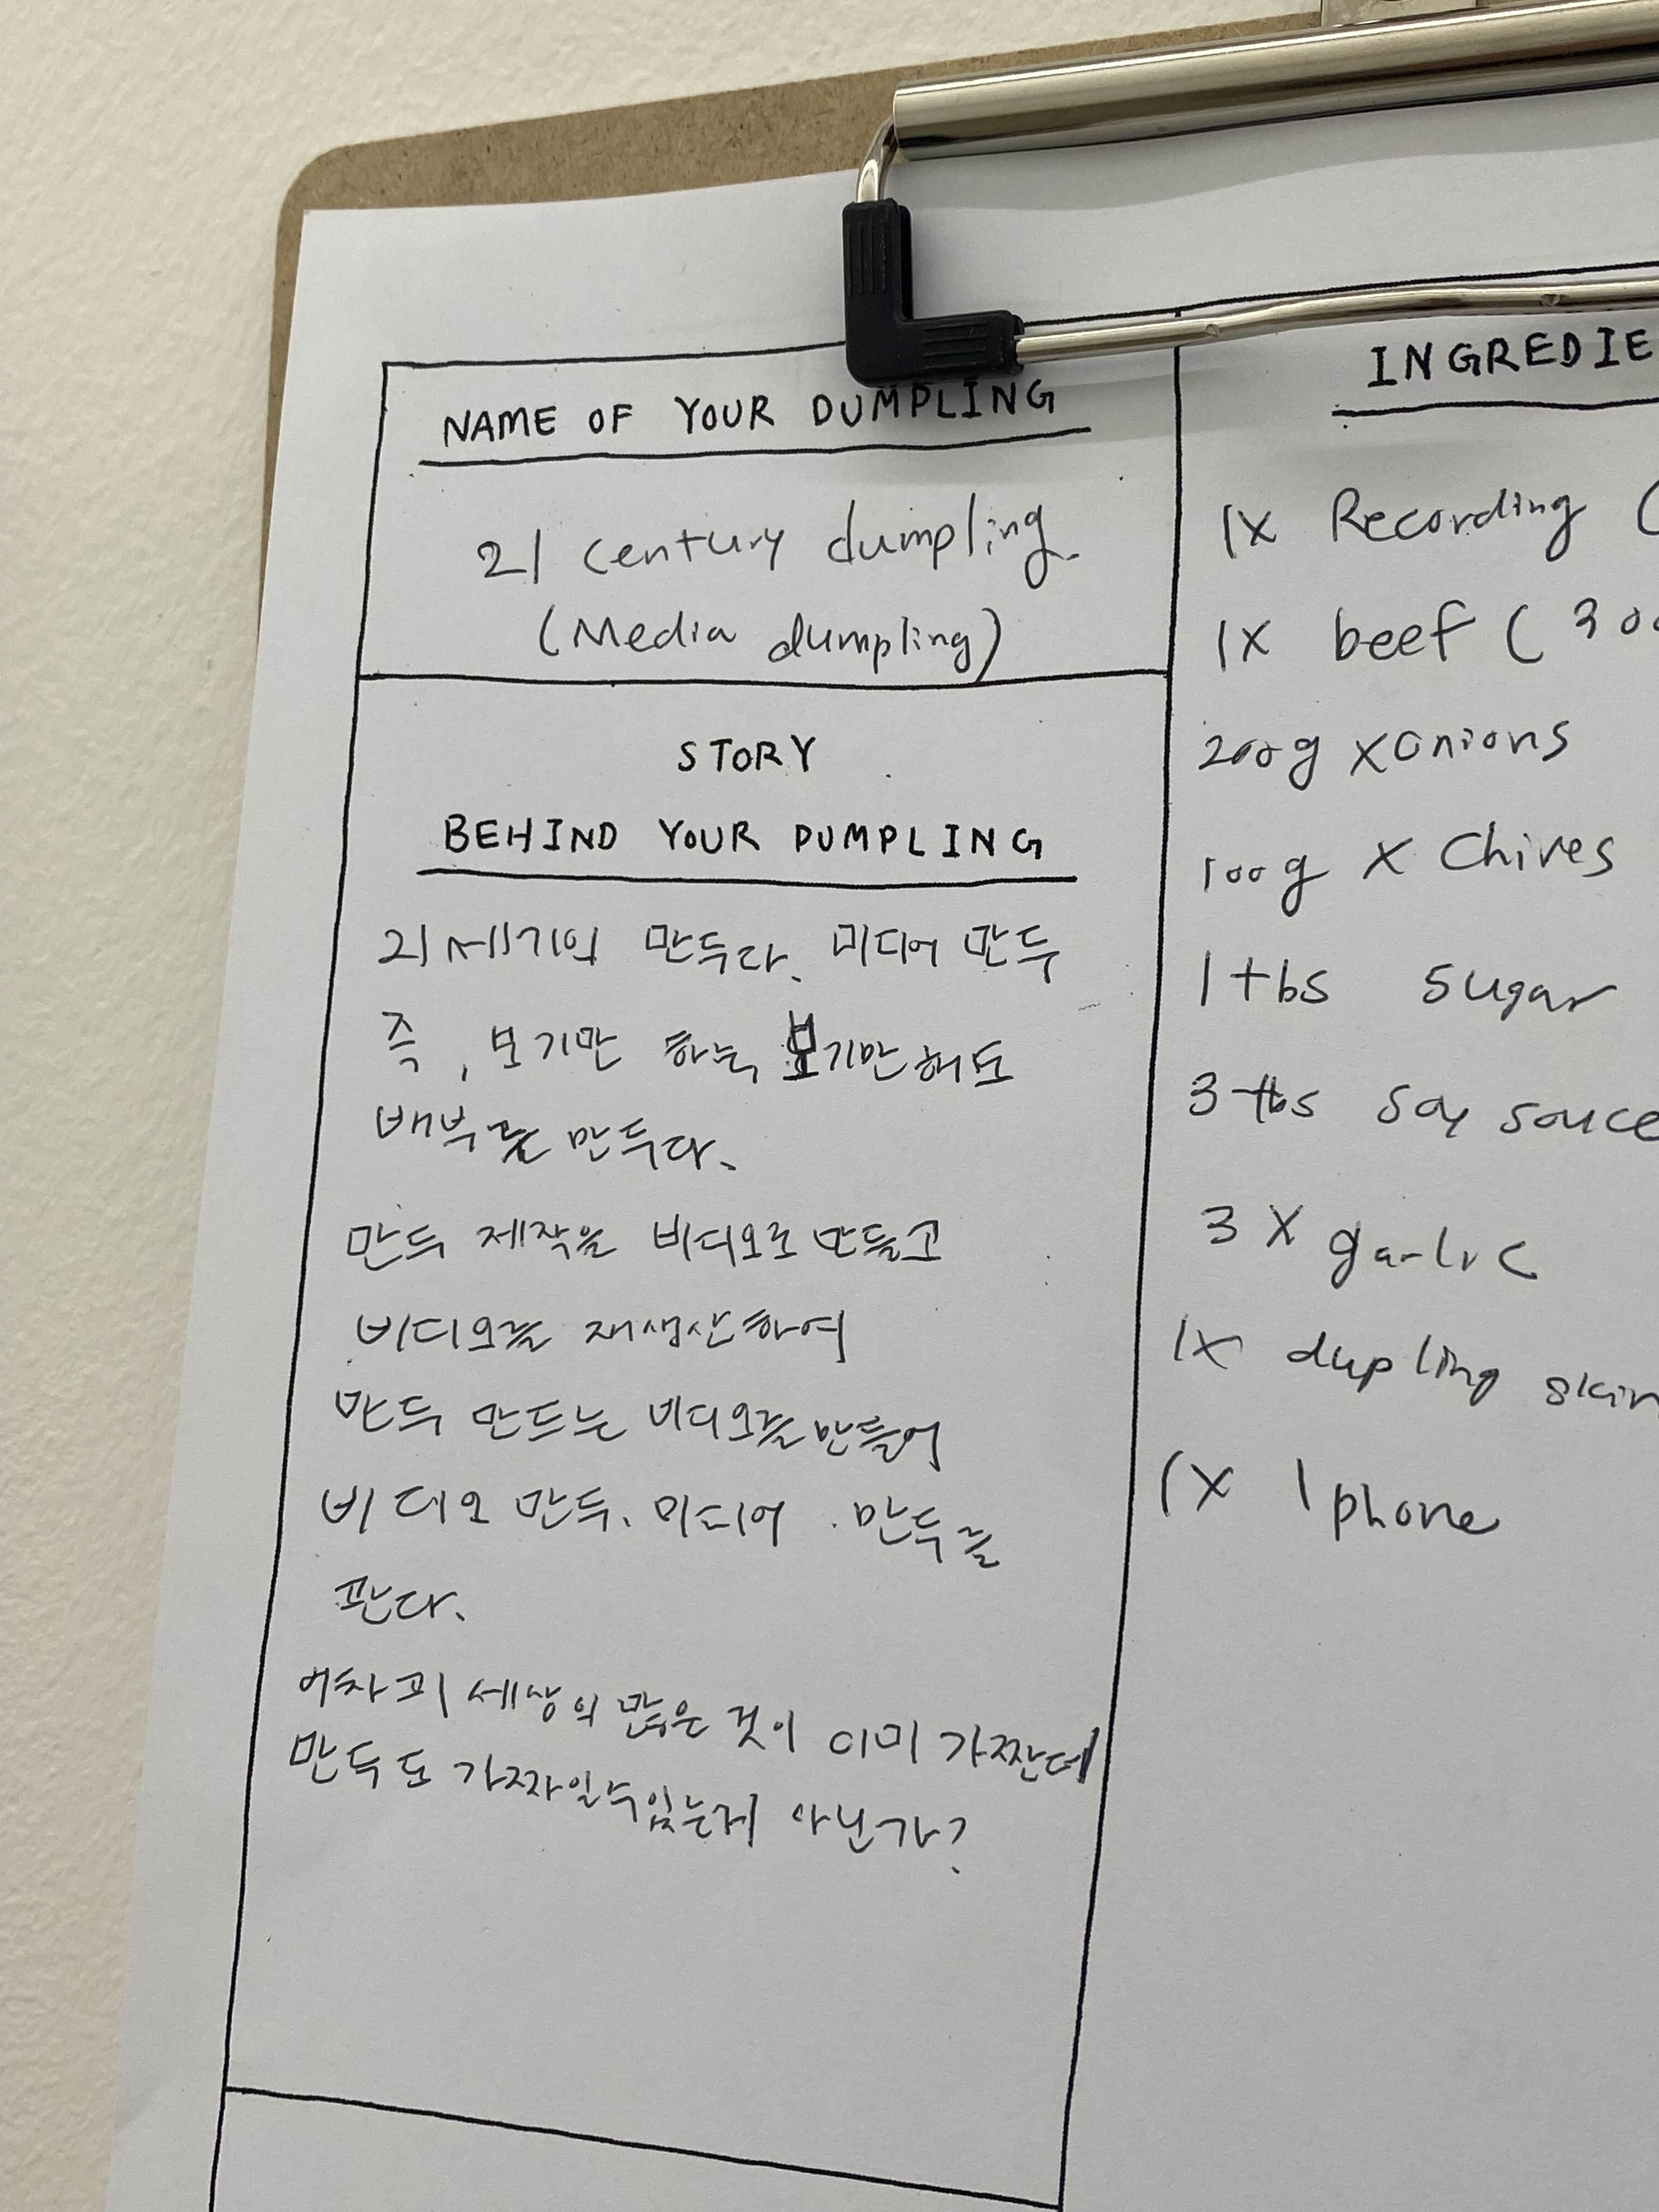 NAME OF YOUR DUMPLING
21 century dumpling.
(Media dumpling)
STORY
BEHIND YOUR DUMPLING
21세기의 만두다. 미디어 만두
즉, 보기만 하는 보기만해도
배부른 만두다.
만두 제작을 비디오로 만들고
비디오를 재생산하여
만두 만드는 비디오를 만들어
비디오 만두. 미디어 만두를
판다.
어차피 세상의 많은 것이 이미 가짠데
만두도 가짜일수있는게 아닌가?
INGREDIE
1X Recording (
1X beef ( 300
200g x onions
100g x Chives
1 tbs sugar
3 tbs soy souce
3 X garlic
1X dupling skin
1X Iphone